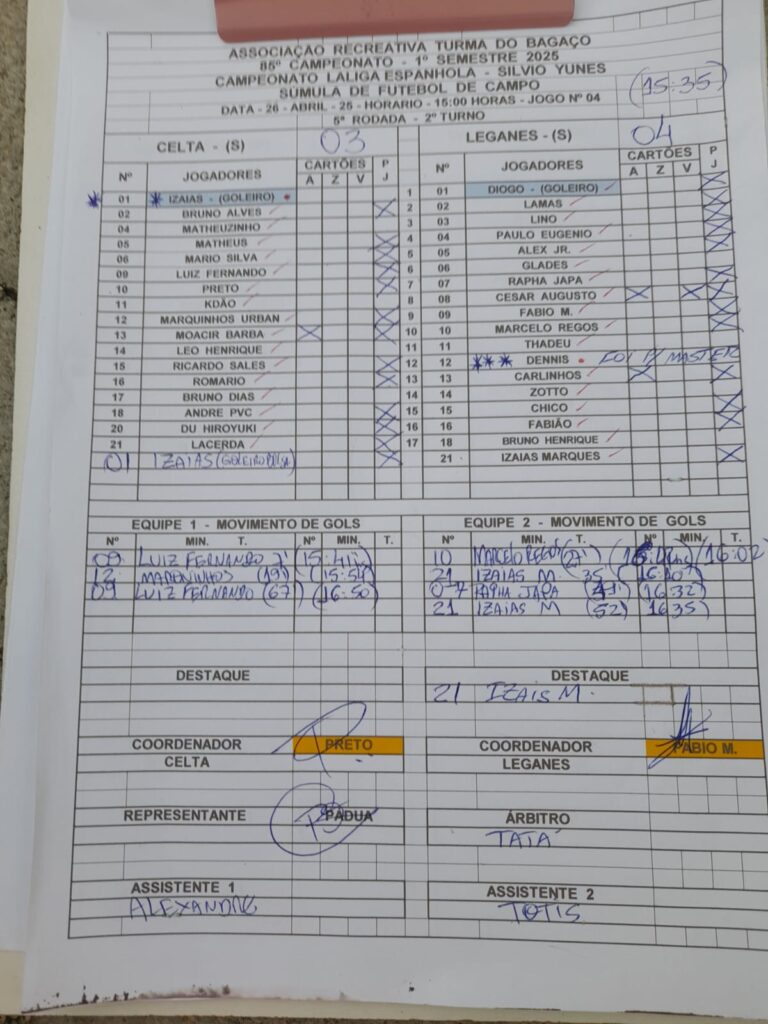 ASSOCIAÇÃO RECREATIVA TURMA DO BAGAÇO
85º CAMPEONATO - 1º SEMESTRE 2025
CAMPEONATO LALIGA ESPANHOLA - SILVIO YUNES
SÚMULA DE FUTEBOL DE CAMPO (15:35)
DATA - 26 - ABRIL - 25 - HORARIO - 15:00 HORAS - JOGO Nº 04
5ª RODADA - 2º TURNO
CELTA - (S) 03
Nº JOGADORES CARTÕES P J
A Z V
01 * IZAIAS - (GOLEIRO)
02 BRUNO ALVES X
04 MATHEUZINHO
05 MATHEUS X
06 MARIO SILVA X
09 LUIZ FERNANDO X
10 PRETO X
11 KDÃO
12 MARQUINHOS URBAN X
13 MOACIR BARBA X X
14 LEO HENRIQUE
15 RICARDO SALES X
16 ROMARIO X
17 BRUNO DIAS
18 ANDRE PVC X
20 DU HIROYUKI X
21 LACERDA X
01 IZAIAS (GOLEIRO X
LEGANES - (S) 04
Nº JOGADORES CARTÕES P J
A Z V
1 01 DIOGO - (GOLEIRO) X
2 02 LAMAS X
3 03 LINO X
4 04 PAULO EUGENIO X
5 05 ALEX JR. X
6 06 GLADES
7 07 RAPHA JAPA X
8 08 CESAR AUGUSTO X X X
9 09 FABIO M. X
10 10 MARCELO REGOS X
11 11 THADEU
12 12 *** DENNIS FOI P/ MASTER
13 13 CARLINHOS X X
14 14 ZOTTO
15 15 CHICO X
16 16 FABIÃO X
17 18 BRUNO HENRIQUE
21 IZAIAS MARQUES X
EQUIPE 1 - MOVIMENTO DE GOLS
Nº MIN. T. Nº MIN. T.
09 LUIZ FERNANDO 7'
12 (19') (15:54)
09 LUIZ FERNANDO (67) (16:50)
EQUIPE 2 - MOVIMENTO DE GOLS
Nº MIN. T. Nº MIN. T.
10 MARCELO REGOS (27') (16:02)
21 IZAIAS M. (35 (16:10')
07 RAPHA JAPA (16 32)
21 IZAIAS M (52) 16 35)
DESTAQUE
DESTAQUE
21 IZAIS M.
COORDENADOR PRETO
CELTA
COORDENADOR FABIO M.
LEGANES
REPRESENTANTE PADUA
ÁRBITRO
TATÁ
ASSISTENTE 1
ALEXANDRE
ASSISTENTE 2
TOTIS